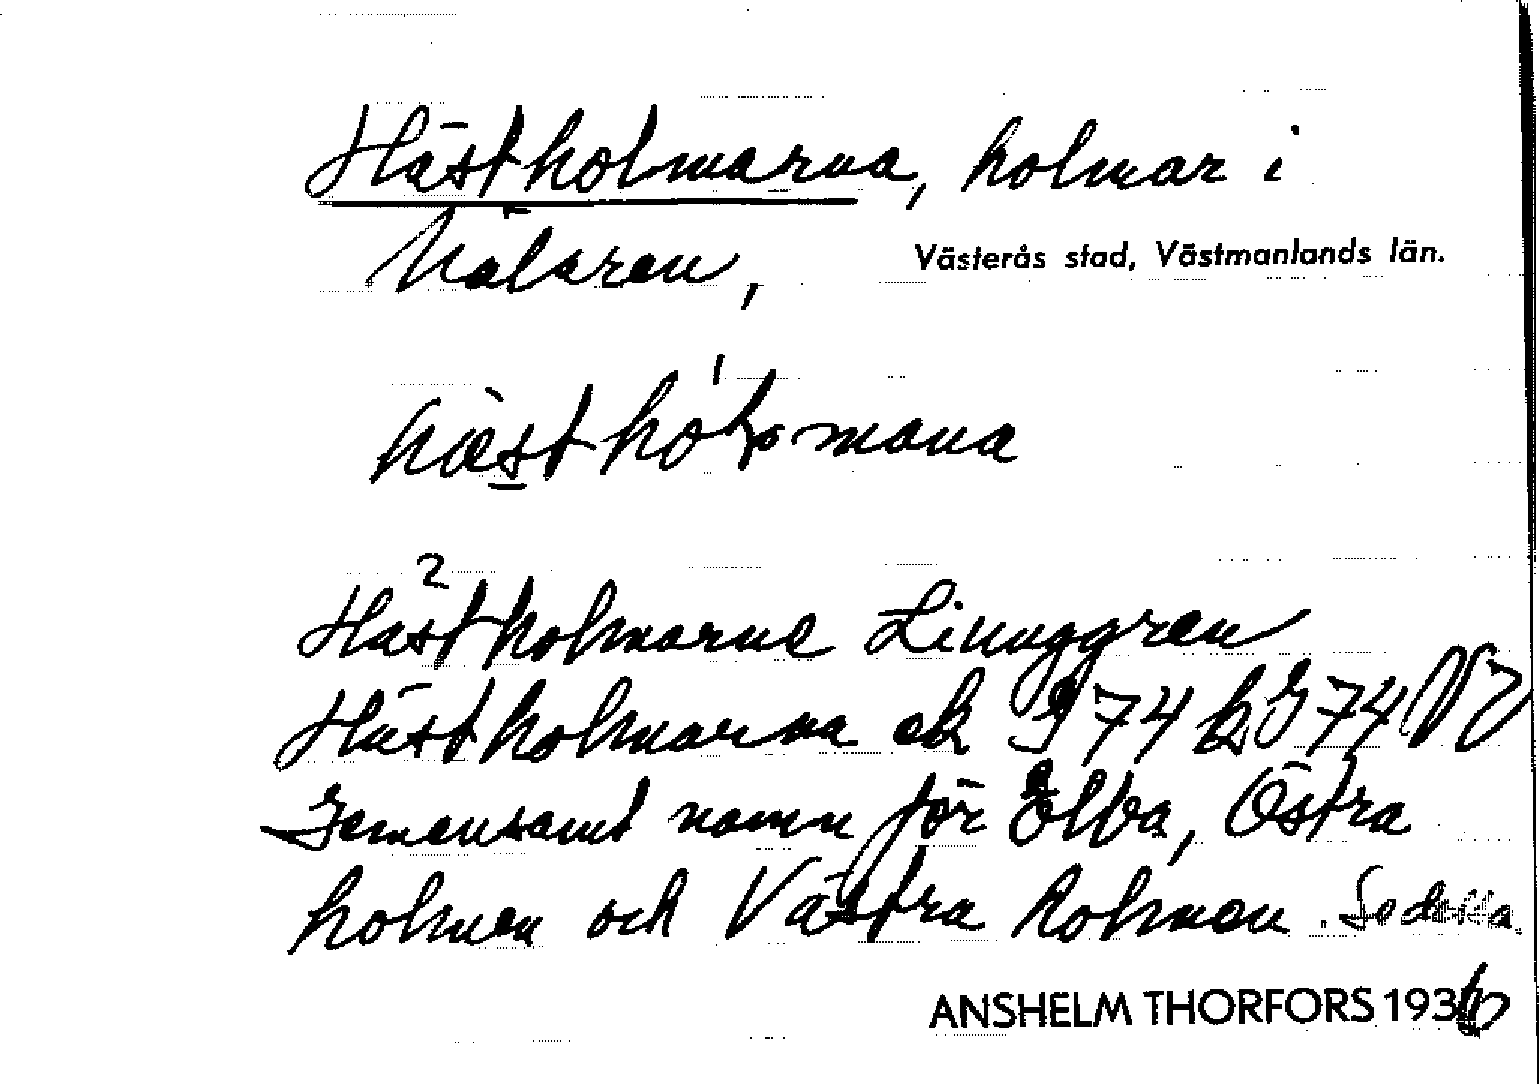 Hästholmarna, holmar i
Mälaren, Västerås stad, Västmanlands län.
Hästholmarne Linnggren
Hästholmarna ek I 74 74
Gemensamt namn för Elba, Östra
holmen och Västra holmen. Se dessa.
ANSHELM THORFORS 1936